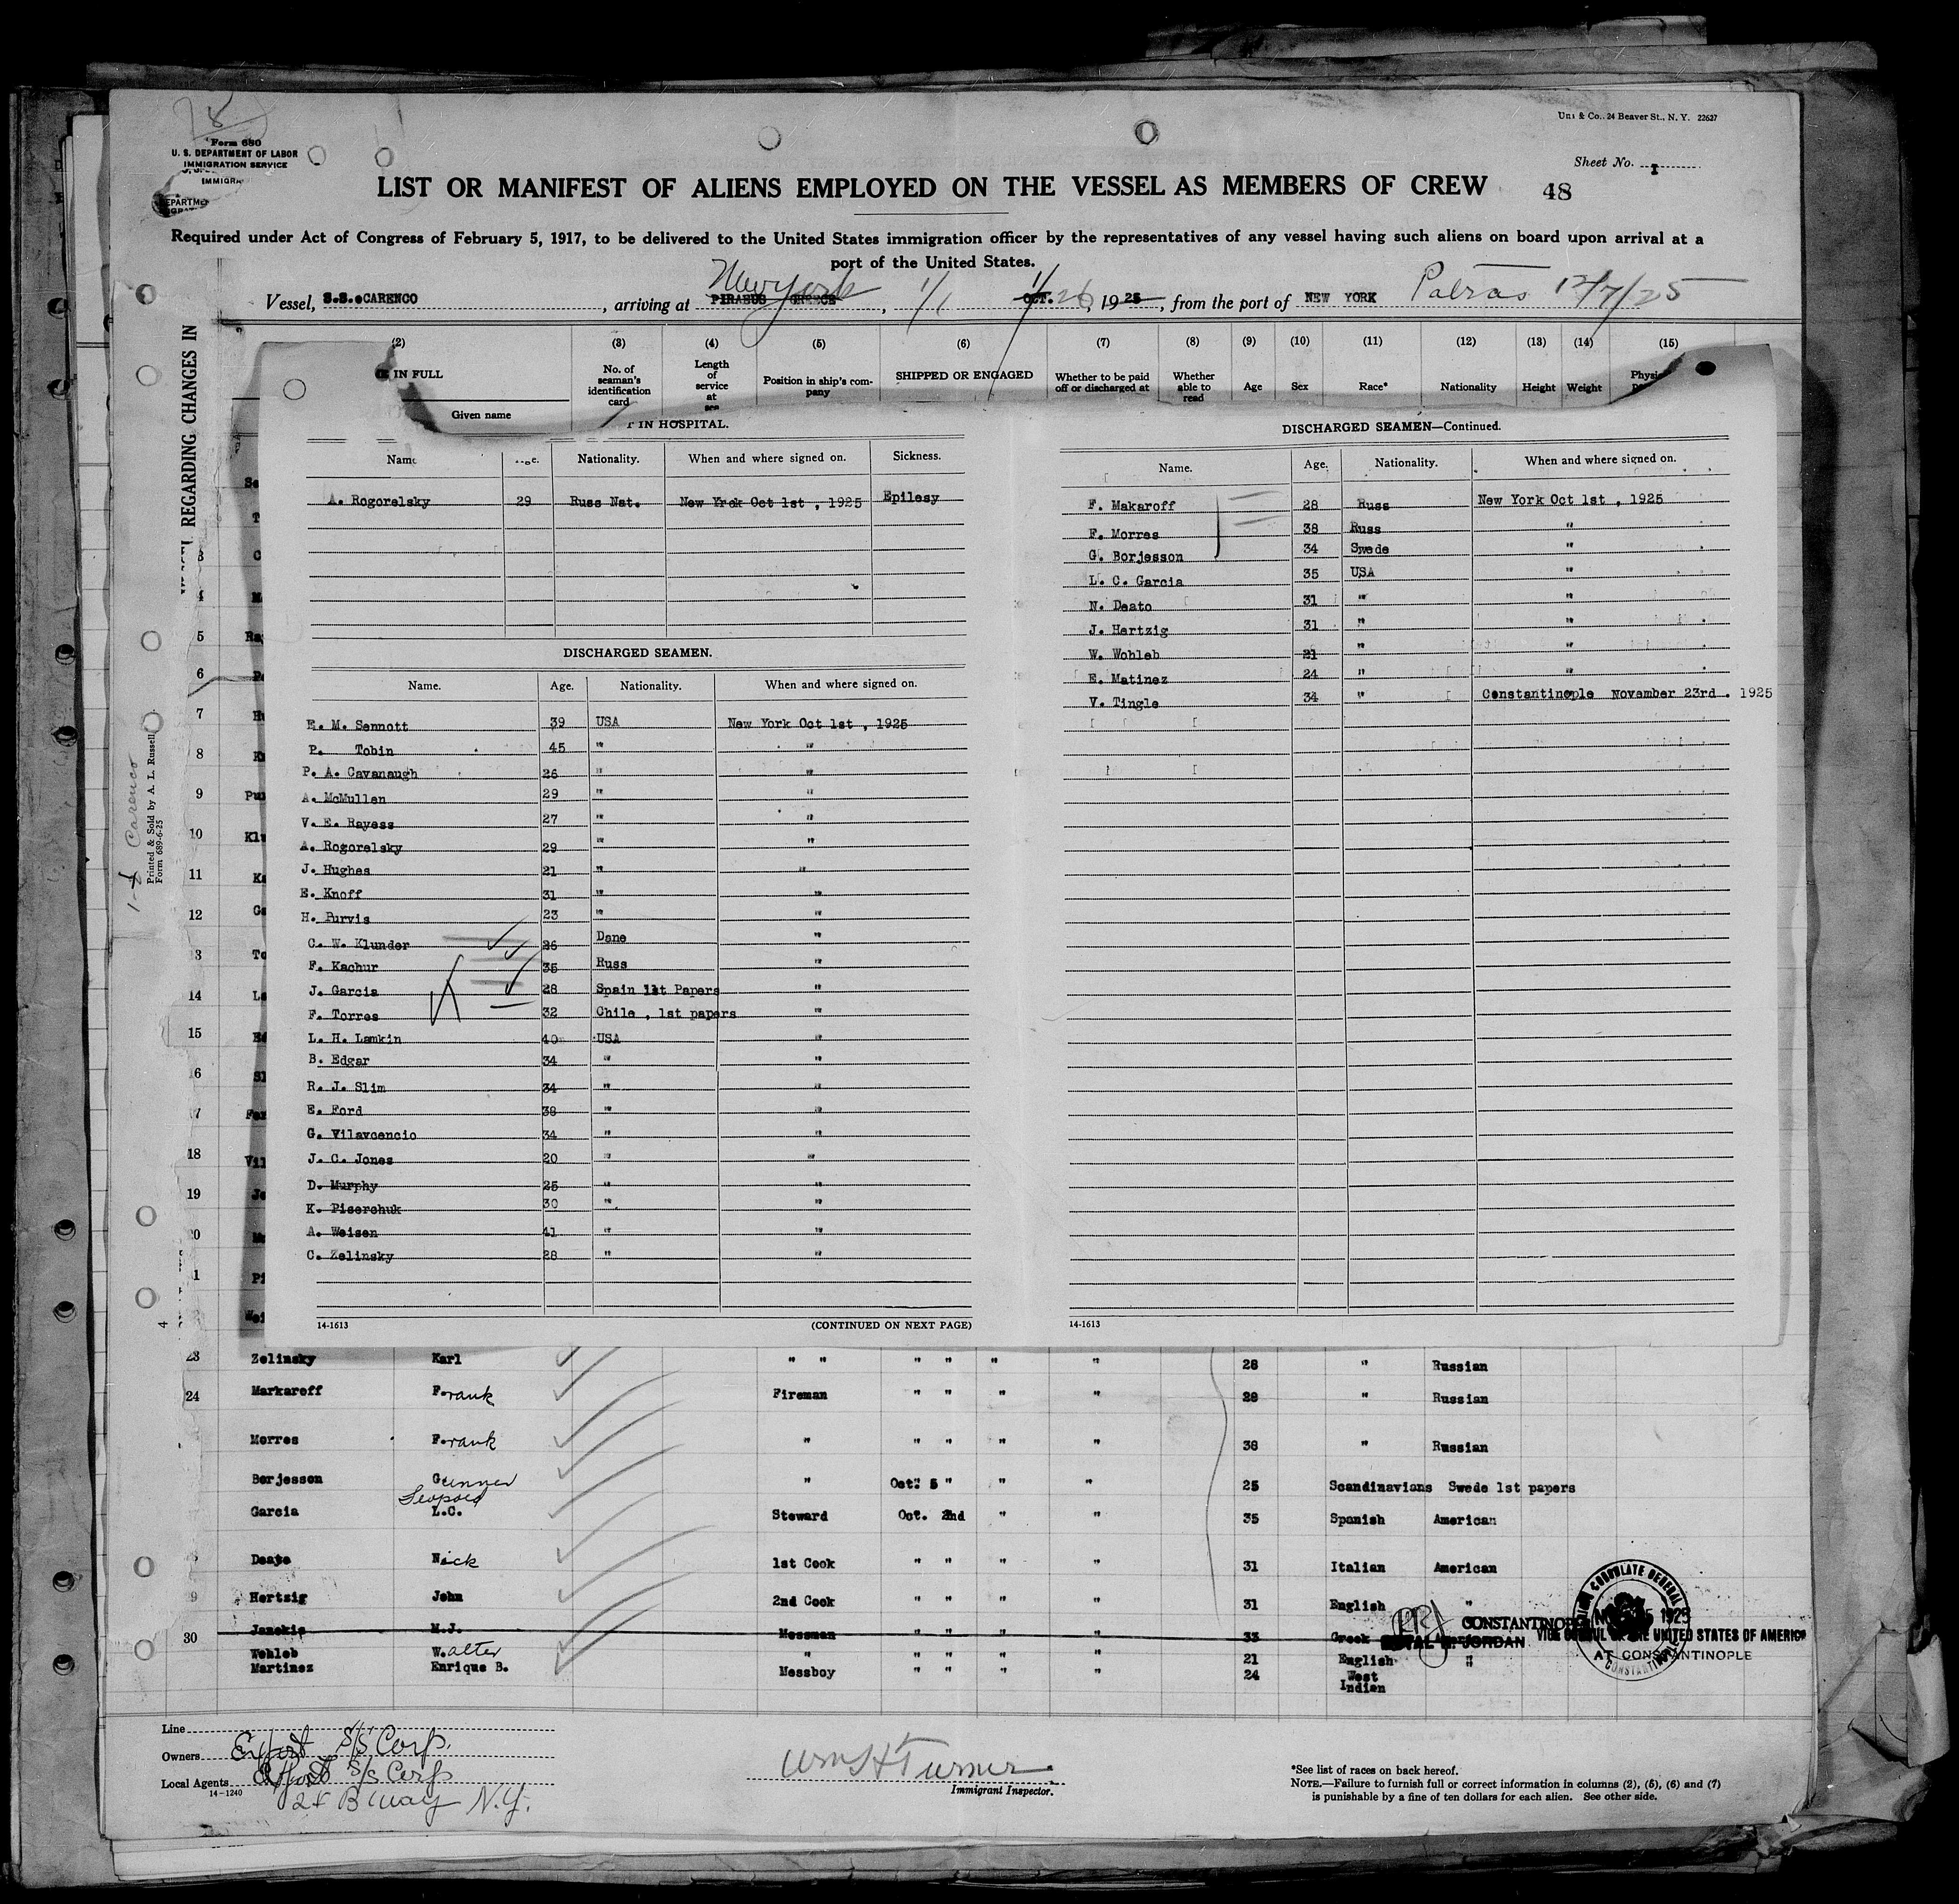 Form 680
U. S. DEPARTMENT OF LABOR
IMMIGRATION SERVICE
Uni & Co., 24 Beaver St., N. Y. 22627
Sheet No. I
LIST OR MANIFEST OF ALIENS EMPLOYED ON THE VESSEL AS MEMBERS OF CREW
48
Required under Act of Congress of February 5, 1917, to be delivered to the United States immigration officer by the representatives of any vessel having such aliens on board upon arrival at a
port of the United States.
Vessel, S.S. CARENCO, arriving at PIRAEUS GREECE New York, 1/1 OCT. 26, 1925, from the port of NEW YORK Patras 12/7/25
REGARDING CHANGES IN
(2) (3) (4) (5) (6) (7) (8) (9) (10) (11) (12) (13) (14) (15)
IN FULL
Given name
No. of seaman's identification card
Length of service at sea
Position in ship's company
SHIPPED OR ENGAGED
Whether to be paid off or discharged at
Whether able to read
Age Sex Race* Nationality Height Weight
IN HOSPITAL.
Name. Age. Nationality. When and where signed on. Sickness.
A. Rogorelsky 29 Russ Nat. New Yrok Oct 1st , 1925 Epilesy
DISCHARGED SEAMEN.
Name. Age. Nationality. When and where signed on.
E. M. Sennott 39 USA New York Oct 1st , 1925
P. Tobin 45 " "
P. A. Cavanaugh 26 " "
A. McMullen 29 " "
V. E. Rayess 27 " "
A. Rogorelsky 29 " "
J. Hughes 21 " "
E. Knoff 31 " "
H. Purvis 23 " "
C. W. Klunder 26 Dane "
F. Kachur 35 Russ "
J. Garcia 28 Spain 1st Papers "
F. Torres 32 Chile , 1st papers "
L. H. Lamkin 40 USA "
B. Edgar 34 " "
R. J. Slim 34 " "
E. Ford 38 " "
G. Vilavcencio 34 " "
J. C. Jones 20 " "
D. Murphy 25 " "
K. Piserchuk 30 " "
A. Weisen 41 " "
C. Zelinsky 28 " "
14-1613 (CONTINUED ON NEXT PAGE)
DISCHARGED SEAMEN—Continued.
Name. Age. Nationality. When and where signed on.
F. Makaroff 28 Russ New York Oct 1st , 1925
F. Morres 38 Russ "
G. Borjesson 34 Swede "
L. C. Garcia 35 USA "
N. Deato 31 " "
J. Hertzig 31 " "
W. Wohleb 21 " "
E. Matinez 24 " "
V. Tingle 34 " Constantinople November 23rd . 1925
14-1613
1-1 Carenco
Printed & Sold by A. L. Russell
Form 689-6-25
5
6
7
8
9
10
11
12
14
15
18
19
Zelinsky Karl " " " " " " 28 " Russian
24 Markaroff Frank Fireman " " " " 28 " Russian
Morres Frank " " " " " 38 " Russian
Borjesson Gunner " Oct. 5 " " " 25 Scandinavians Swede 1st papers
Leopold
Garcia L.C. Steward Oct. 2nd " " 35 Spanish American
Deato Nick 1st Cook " " " " 31 Italian American
9 Hertzig John 2nd Cook " " " " 31 English "
30 Janekis M.J. Messman " " " " 33 Greek
Wohleb Walter " " " " " 21 English "
Martinez Enrique B. Messboy " " " " 24 West Indian
CONSTANTINOPLE
JORDAN
VICE CONSUL OF THE UNITED STATES OF AMERICA
AT CONSTANTINOPLE
1925
CONSULATE GENERAL
CONSTANTINOPLE
Line
Owners Export S/S Corp.
Local Agents Export S/S Corp
14-1240
Bway N.Y.
Wm H Turner
Immigrant Inspector.
*See list of races on back hereof.
NOTE.—Failure to furnish full or correct information in columns (2), (5), (6) and (7)
is punishable by a fine of ten dollars for each alien. See other side.